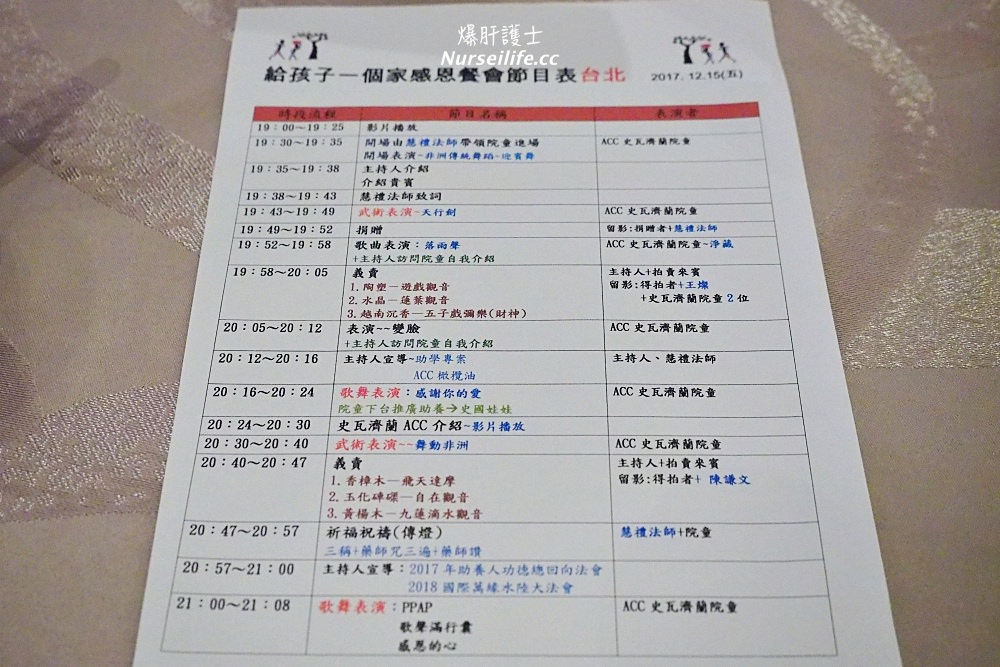 爆肝護士
Nurseilife.cc
給孩子一個家感恩餐會節目表台北 2017.12.15(五)
時段流程 節目名稱 表演者
19：00～19：25 影片播放
19：30～19：35 開場由慧禮法師帶領院童進場 ACC 史瓦濟蘭院童
開場表演~非洲傳統舞蹈-迎賓舞
19：35～19：38 主持人介紹
介紹貴賓
19：38～19：43 慧禮法師致詞
19：43～19：49 武術表演~天行劍 ACC 史瓦濟蘭院童
19：49～19：52 捐贈 留影:捐贈者+慧禮法師
19：52～19：58 歌曲表演：落雨聲 ACC 史瓦濟蘭院童~淨藏
+主持人訪問院童自我介紹
19：58～20：05 義賣 主持人+拍賣來賓
1.陶塑—遊戲觀音 留影:得拍者+王燦
2.水晶—蓮葉觀音 +史瓦濟蘭院童 2 位
3.越南沉香—五子戲彌樂(財神)
20：05～20：12 表演~~變臉 ACC 史瓦濟蘭院童
+主持人訪問院童自我介紹
20：12～20：16 主持人宣導~助學專案 主持人、慧禮法師
ACC 橄欖油
20：16～20：24 歌舞表演：感謝你的愛 ACC 史瓦濟蘭院童
院童下台推廣助養→史國娃娃
20：24～20：30 史瓦濟蘭 ACC 介紹~影片播放
20：30～20：40 武術表演~~舞動非洲 ACC 史瓦濟蘭院童
20：40～20：47 義賣 主持人+拍賣來賓
1.香樟木—飛天達摩 留影:得拍者+ 陳謙文
2.玉化硨磲—自在觀音
3.黃楊木—九蓮滴水觀音
20：47～20：57 祈福祝禱(傳燈) 慧禮法師+院童
三稱+藥師咒三遍+藥師讚
20：57～21：00 主持人宣導：2017 年助養人功德總回向法會
2018 國際萬緣水陸大法會
21：00～21：08 歌舞表演：PPAP ACC 史瓦濟蘭院童
歌聲滿行囊
感恩的心